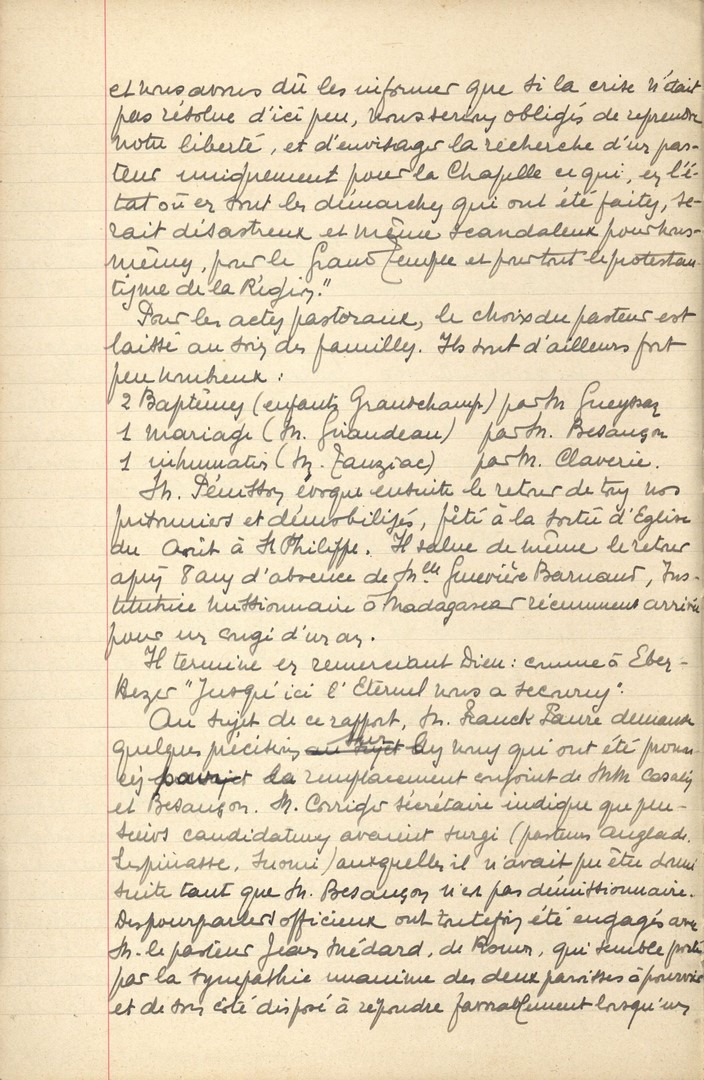 et nous avons dû les informer que si la crise n'était
pas résolue d'ici peu, nous serions obligés de reprendre
notre liberté, et d'envisager la recherche d'un pas-
teur uniquement pour la Chapelle ce qui, en l'é-
tat où en sont les démarches qui ont été faites, se-
rait désastreux et même scandaleux pour nous-
mêmes, pour le Grand Temple et pour tout le protestan-
tisme de la Région."
Pour les actes pastoraux, le choix du pasteur est
laissé au soin des familles. Ils sont d'ailleurs fort
peu nombreux :
2 Baptêmes (enfants Grandchamp) par M
1 mariage (M. Girandeau) par M. Besançon
1 inhumation (M. Tauziac) par M. Claverie.
M. Pénisson évoque ensuite le retour de tous nos
prisonniers et démobilisés, fêté à la sortie d'Eglise
du Août à St Philippe. Il salue de même le retour
après 8 ans d'absence de Melle Geneviève Barnaud, Ins-
titutrice missionnaire à Madagascar récemment arrivée
pour un congé d'un an.
Il termine en remerciant Dieu : comme à Eben-
Hezer "Jusqu'ici l'Eternel nous a secourus".
Au sujet de ce rapport, M. Franck Faure demande
quelques précisions au sujet sur les noms qui ont été pronon-
cés pour le remplacement conjoint de MM Casalis
et Besançon. M. Corriger secrétaire indique que plu-
sieurs candidatures avaient surgi (pasteurs Anglade,
Lespinasse, ) auxquelles il n'avait pu être donné
suite tant que M. Besançon n'est pas démissionnaire.
Des pourparlers officieux ont toutefois été engagés avec
M. le pasteur Jean Médard, de Rouen, qui semble porté
par la sympathie unanime des deux paroisses à pourvoir
et de son côté disposé à répondre favorablement lorsqu'un